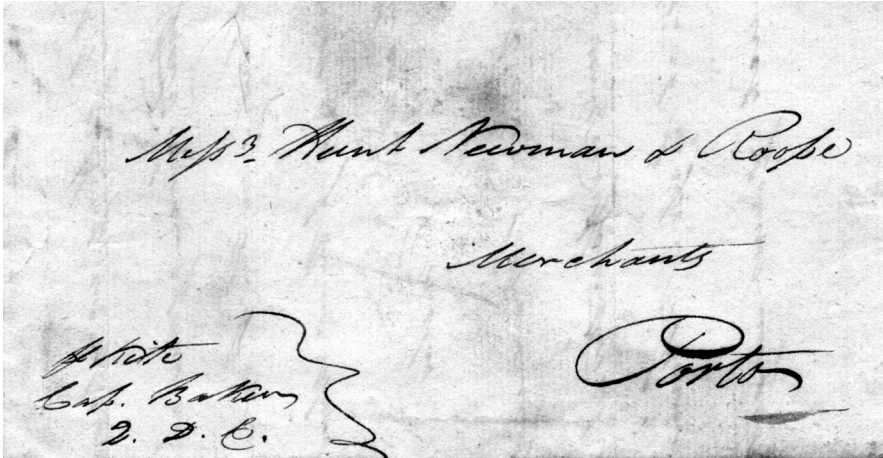 Messrs. Hunt Newman & Roope
Merchants
Porto
p Kite
Cap. Baker
Q. D. C.